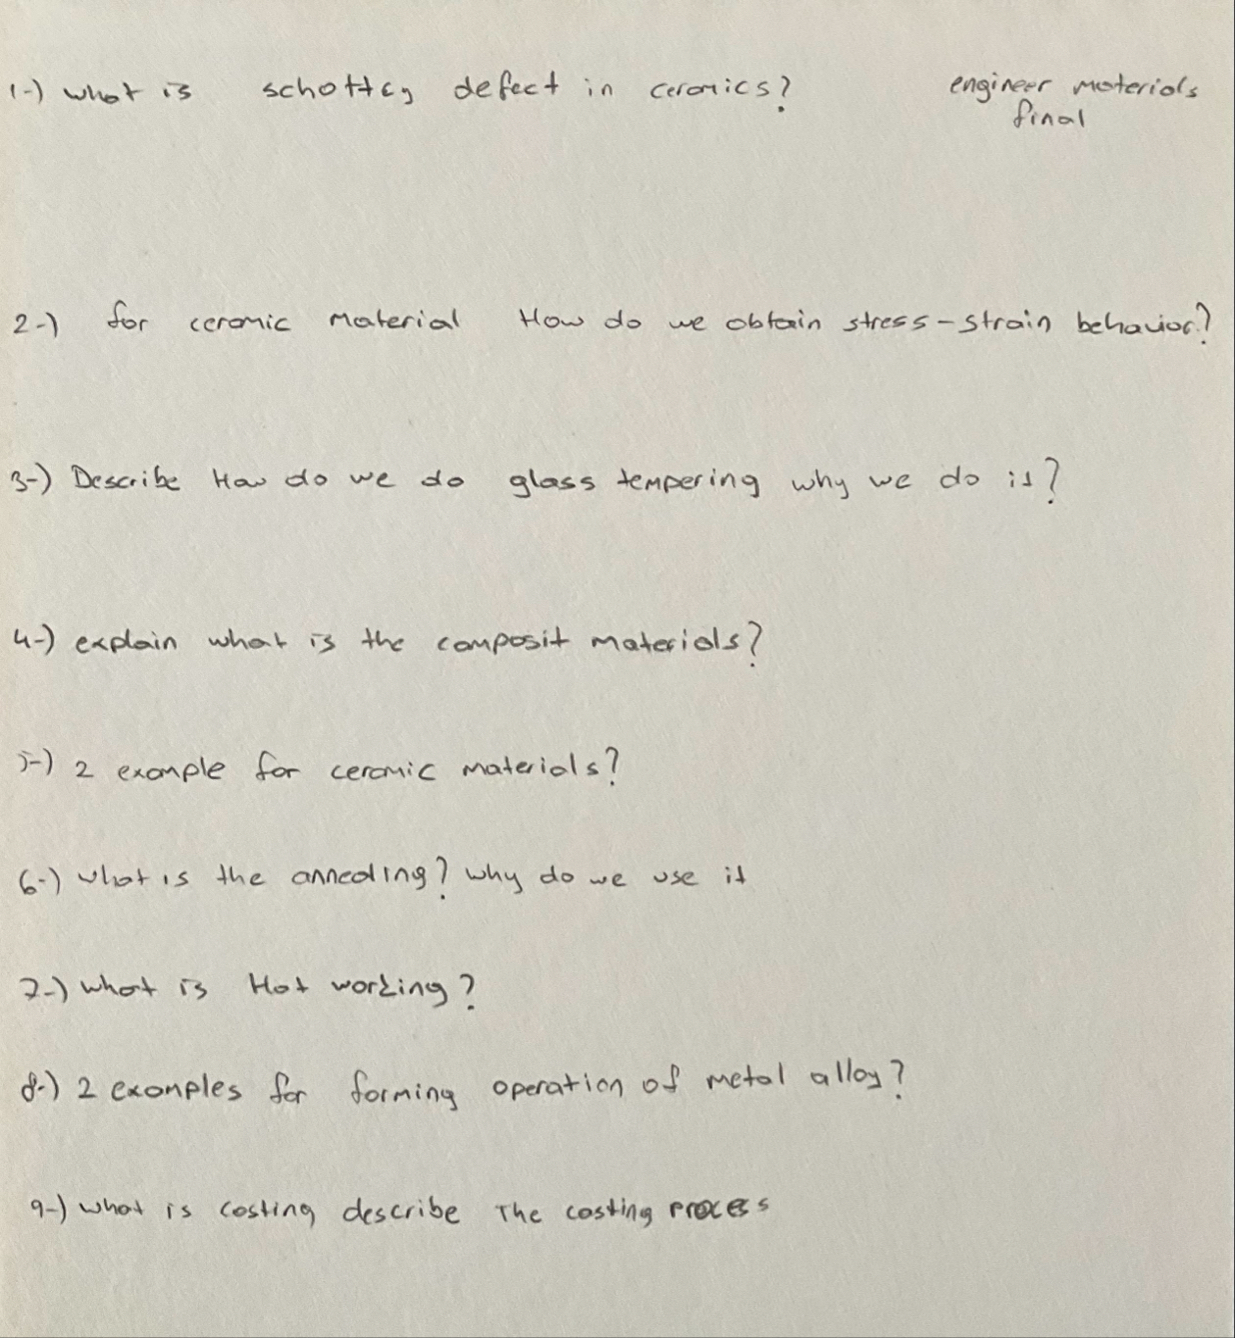 1-) what is schottcy defect in ceramics?
engineer materials
final
2-) for ceramic material How do we obtain stress-strain behavior?
3-) Describe How do we do glass tempering why we do it?
4-) explain what is the composit materials?
5-) 2 example for ceramic materials?
6-) what is the annealing? why do we use it
7-) what is Hot working?
8-) 2 examples for forming operation of metal alloy?
9-) what is casting describe The casting process